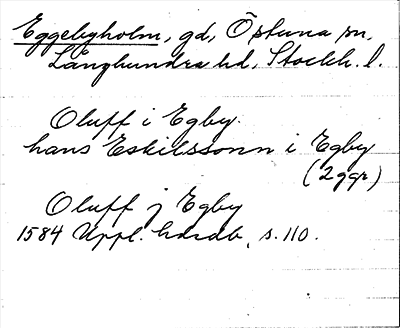 Eggebyholm, gd, Östuna sn,
Långhundra hd, Stockh. l.
Oluff i Egby.
hans Eskilssonn i Egby
(2 ggr)
Oluff j Egby
1584 Uppl. hdrdb, s. 110.